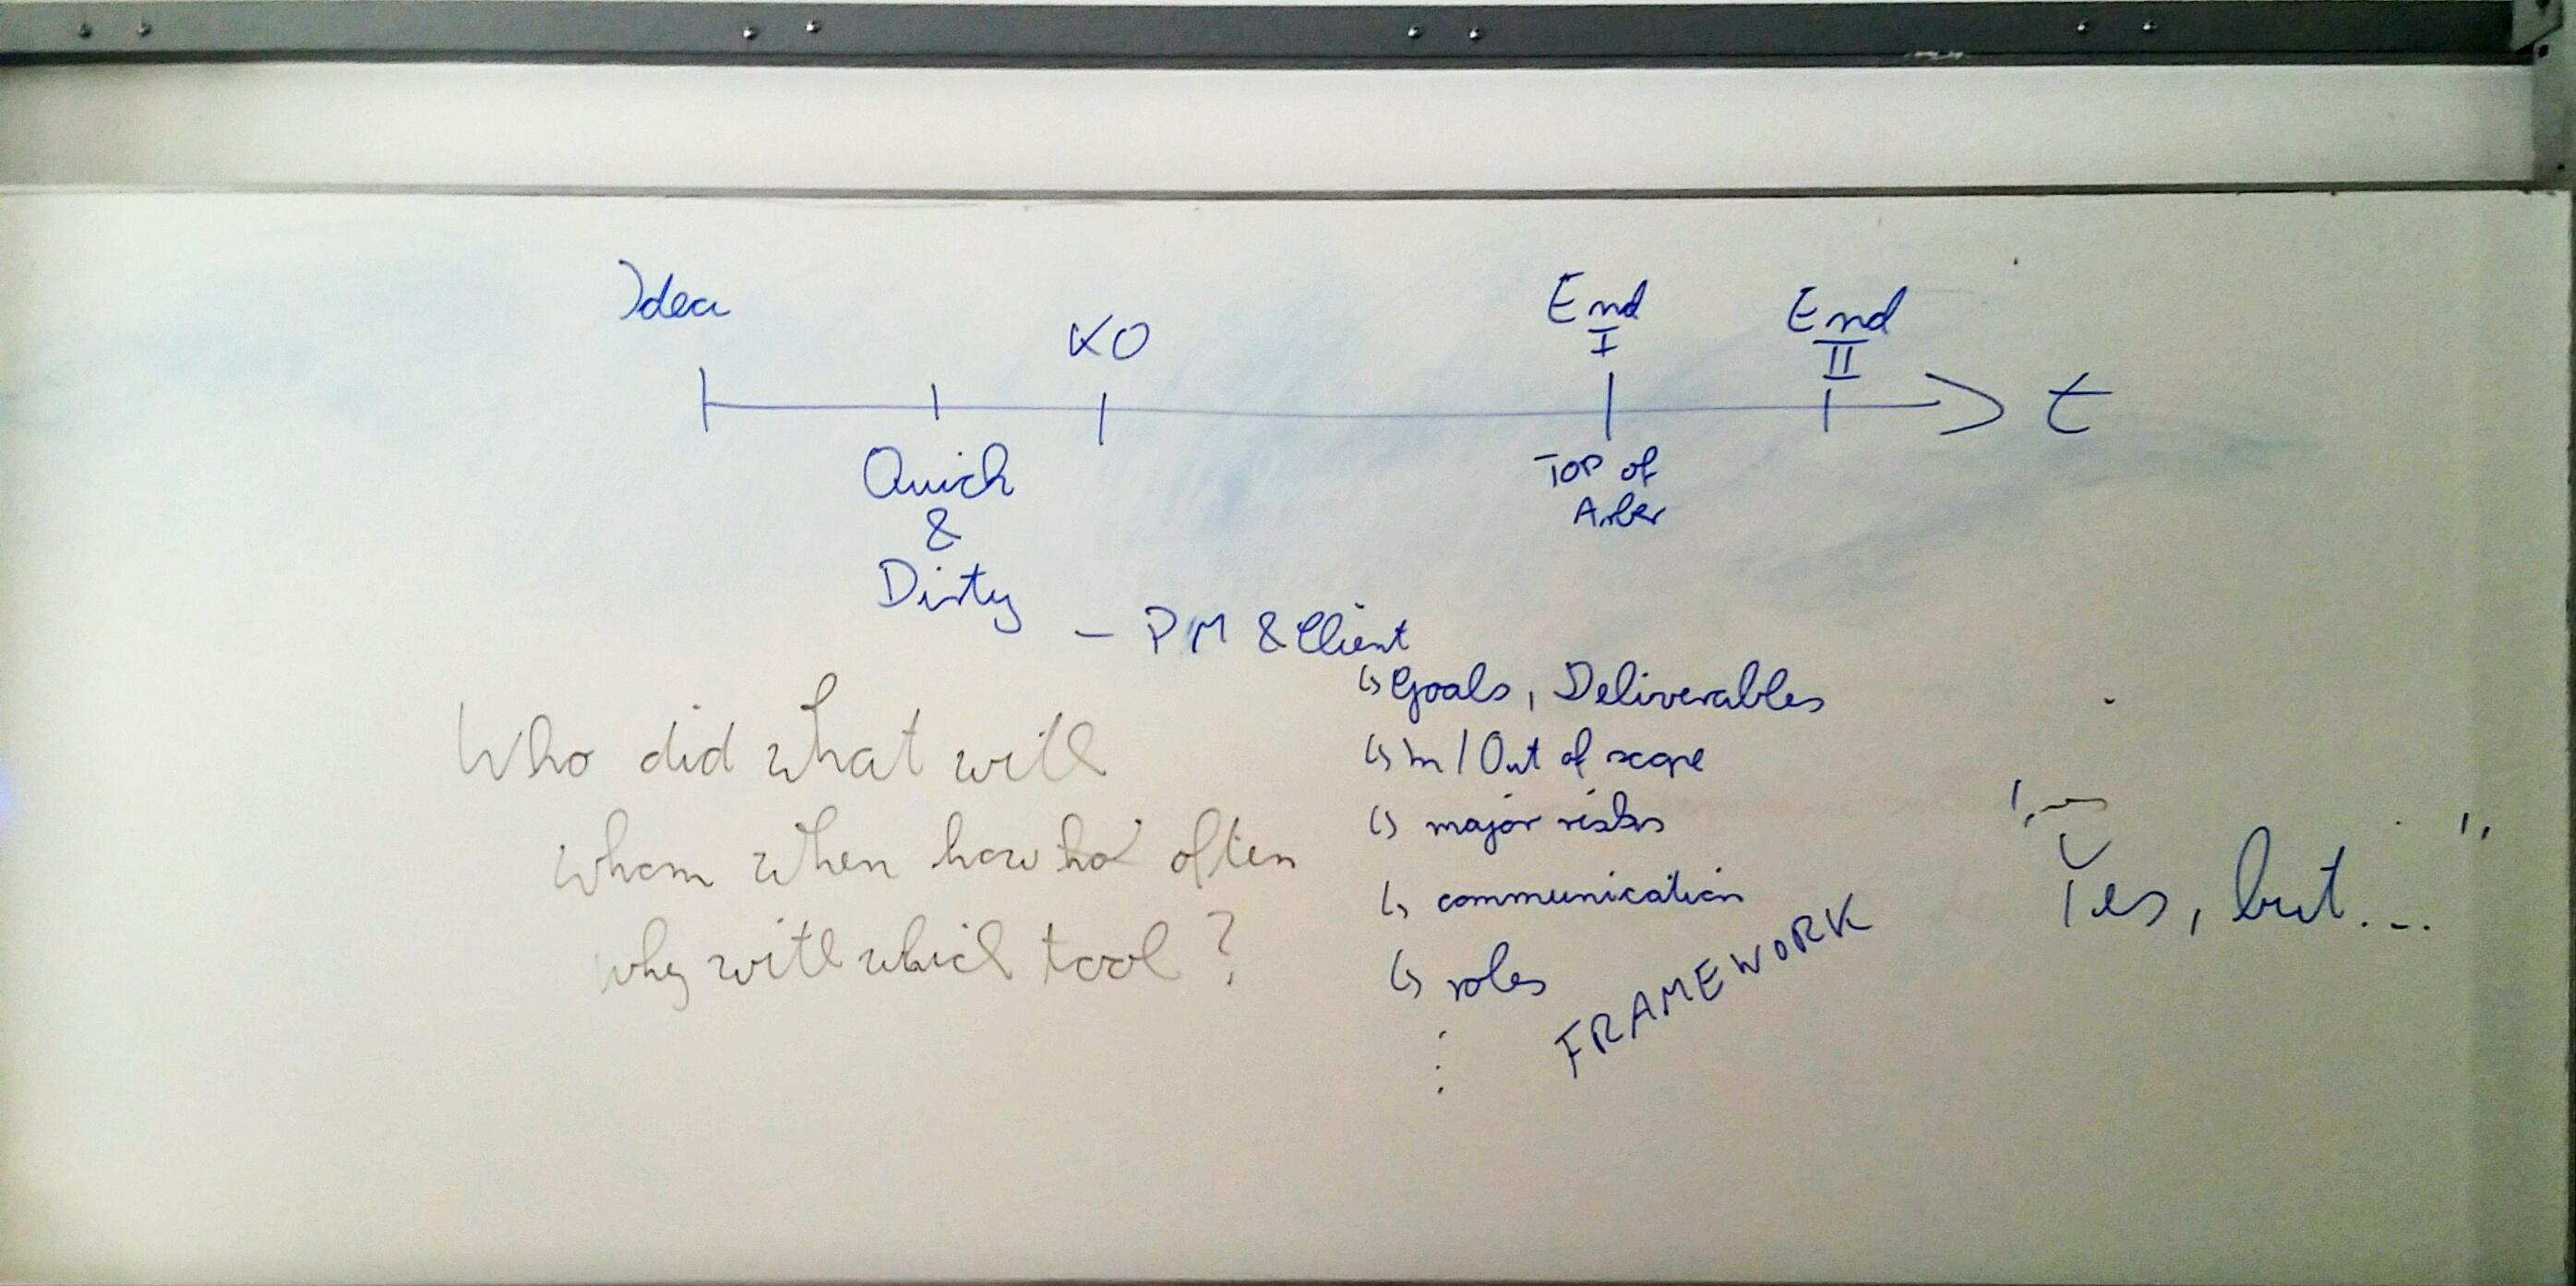 Idea
KO
End
I
End
II
t
Quick
&
Dirty
Top of
Arber
- PM & Client
↳ Goals, Deliverables
↳ In / Out of scope
↳ major risks
↳ communication
↳ roles
⋮
FRAMEWORK
Who did what with
whom when how often
why with which tool?
"Yes, but..."